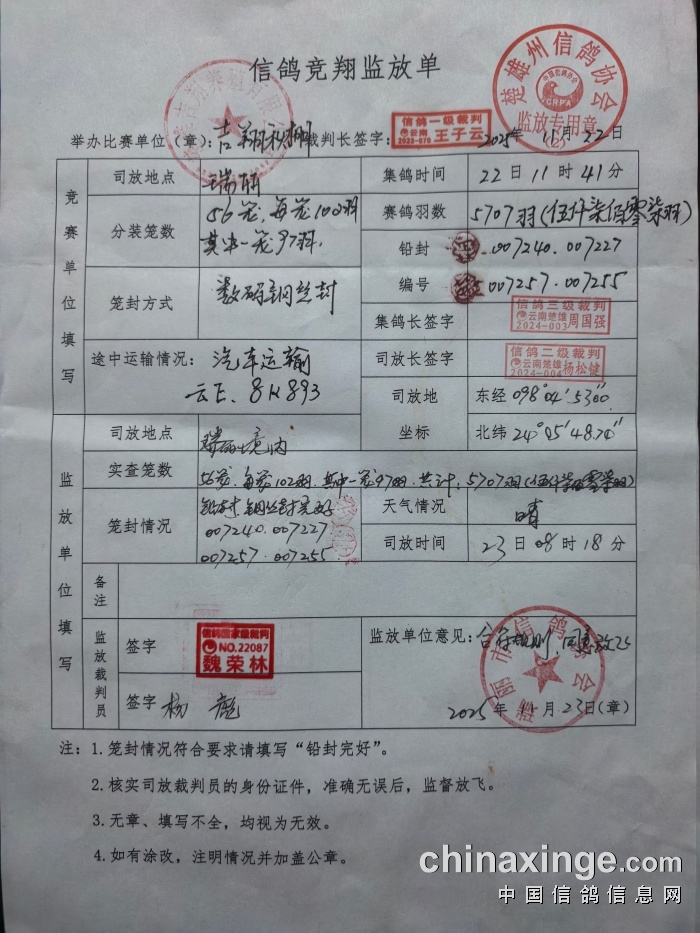 信鸽竞翔监放单
楚雄州信鸽协会
中国信鸽协会
CRPA
监放专用章
(2)
举办比赛单位（章）：吉翔 裁判长签字：
信鸽一级裁判
云南
2023-070 王子云
2025年11月22日
竞赛单位填写
司放地点 瑞丽 集鸽时间 22日11时41分
分装笼数 56笼，每笼102羽 其中一笼97羽. 赛鸽羽数 5707羽(伍仟柒佰零柒羽)
铅封 007240.007227
编号 007257.007255
笼封方式 数码钢丝封 集鸽长签字
信鸽三级裁判
云南楚雄
2024-003 周国强
途中运输情况： 汽车运输
云E.8K893
司放长签字
信鸽二级裁判
云南楚雄
2024-004 杨松健
司放地 东经 098°04′53
坐标 北纬 24°05′48
监放单位填写
司放地点 瑞丽境内
实查笼数 56笼.每笼102羽.其中一笼97羽.共计：5707羽(伍仟柒佰零柒羽)
笼封情况 铅封钢丝封完好
007240.007227
007257.007255
天气情况 晴
司放时间 23日08时18分
备注
监放裁判员
签字
信鸽国家级裁判
NO.22087
魏荣林
签字 杨彪
监放单位意见： 符合规则，同意放飞
瑞丽市信鸽协会
2025年11月23日(章)
注：1.笼封情况符合要求请填写“铅封完好”。
2.核实司放裁判员的身份证件，准确无误后，监督放飞。
3.无章、填写不全，均视为无效。
4.如有涂改，注明情况并加盖公章。
chinaxinge.com
中国信鸽信息网